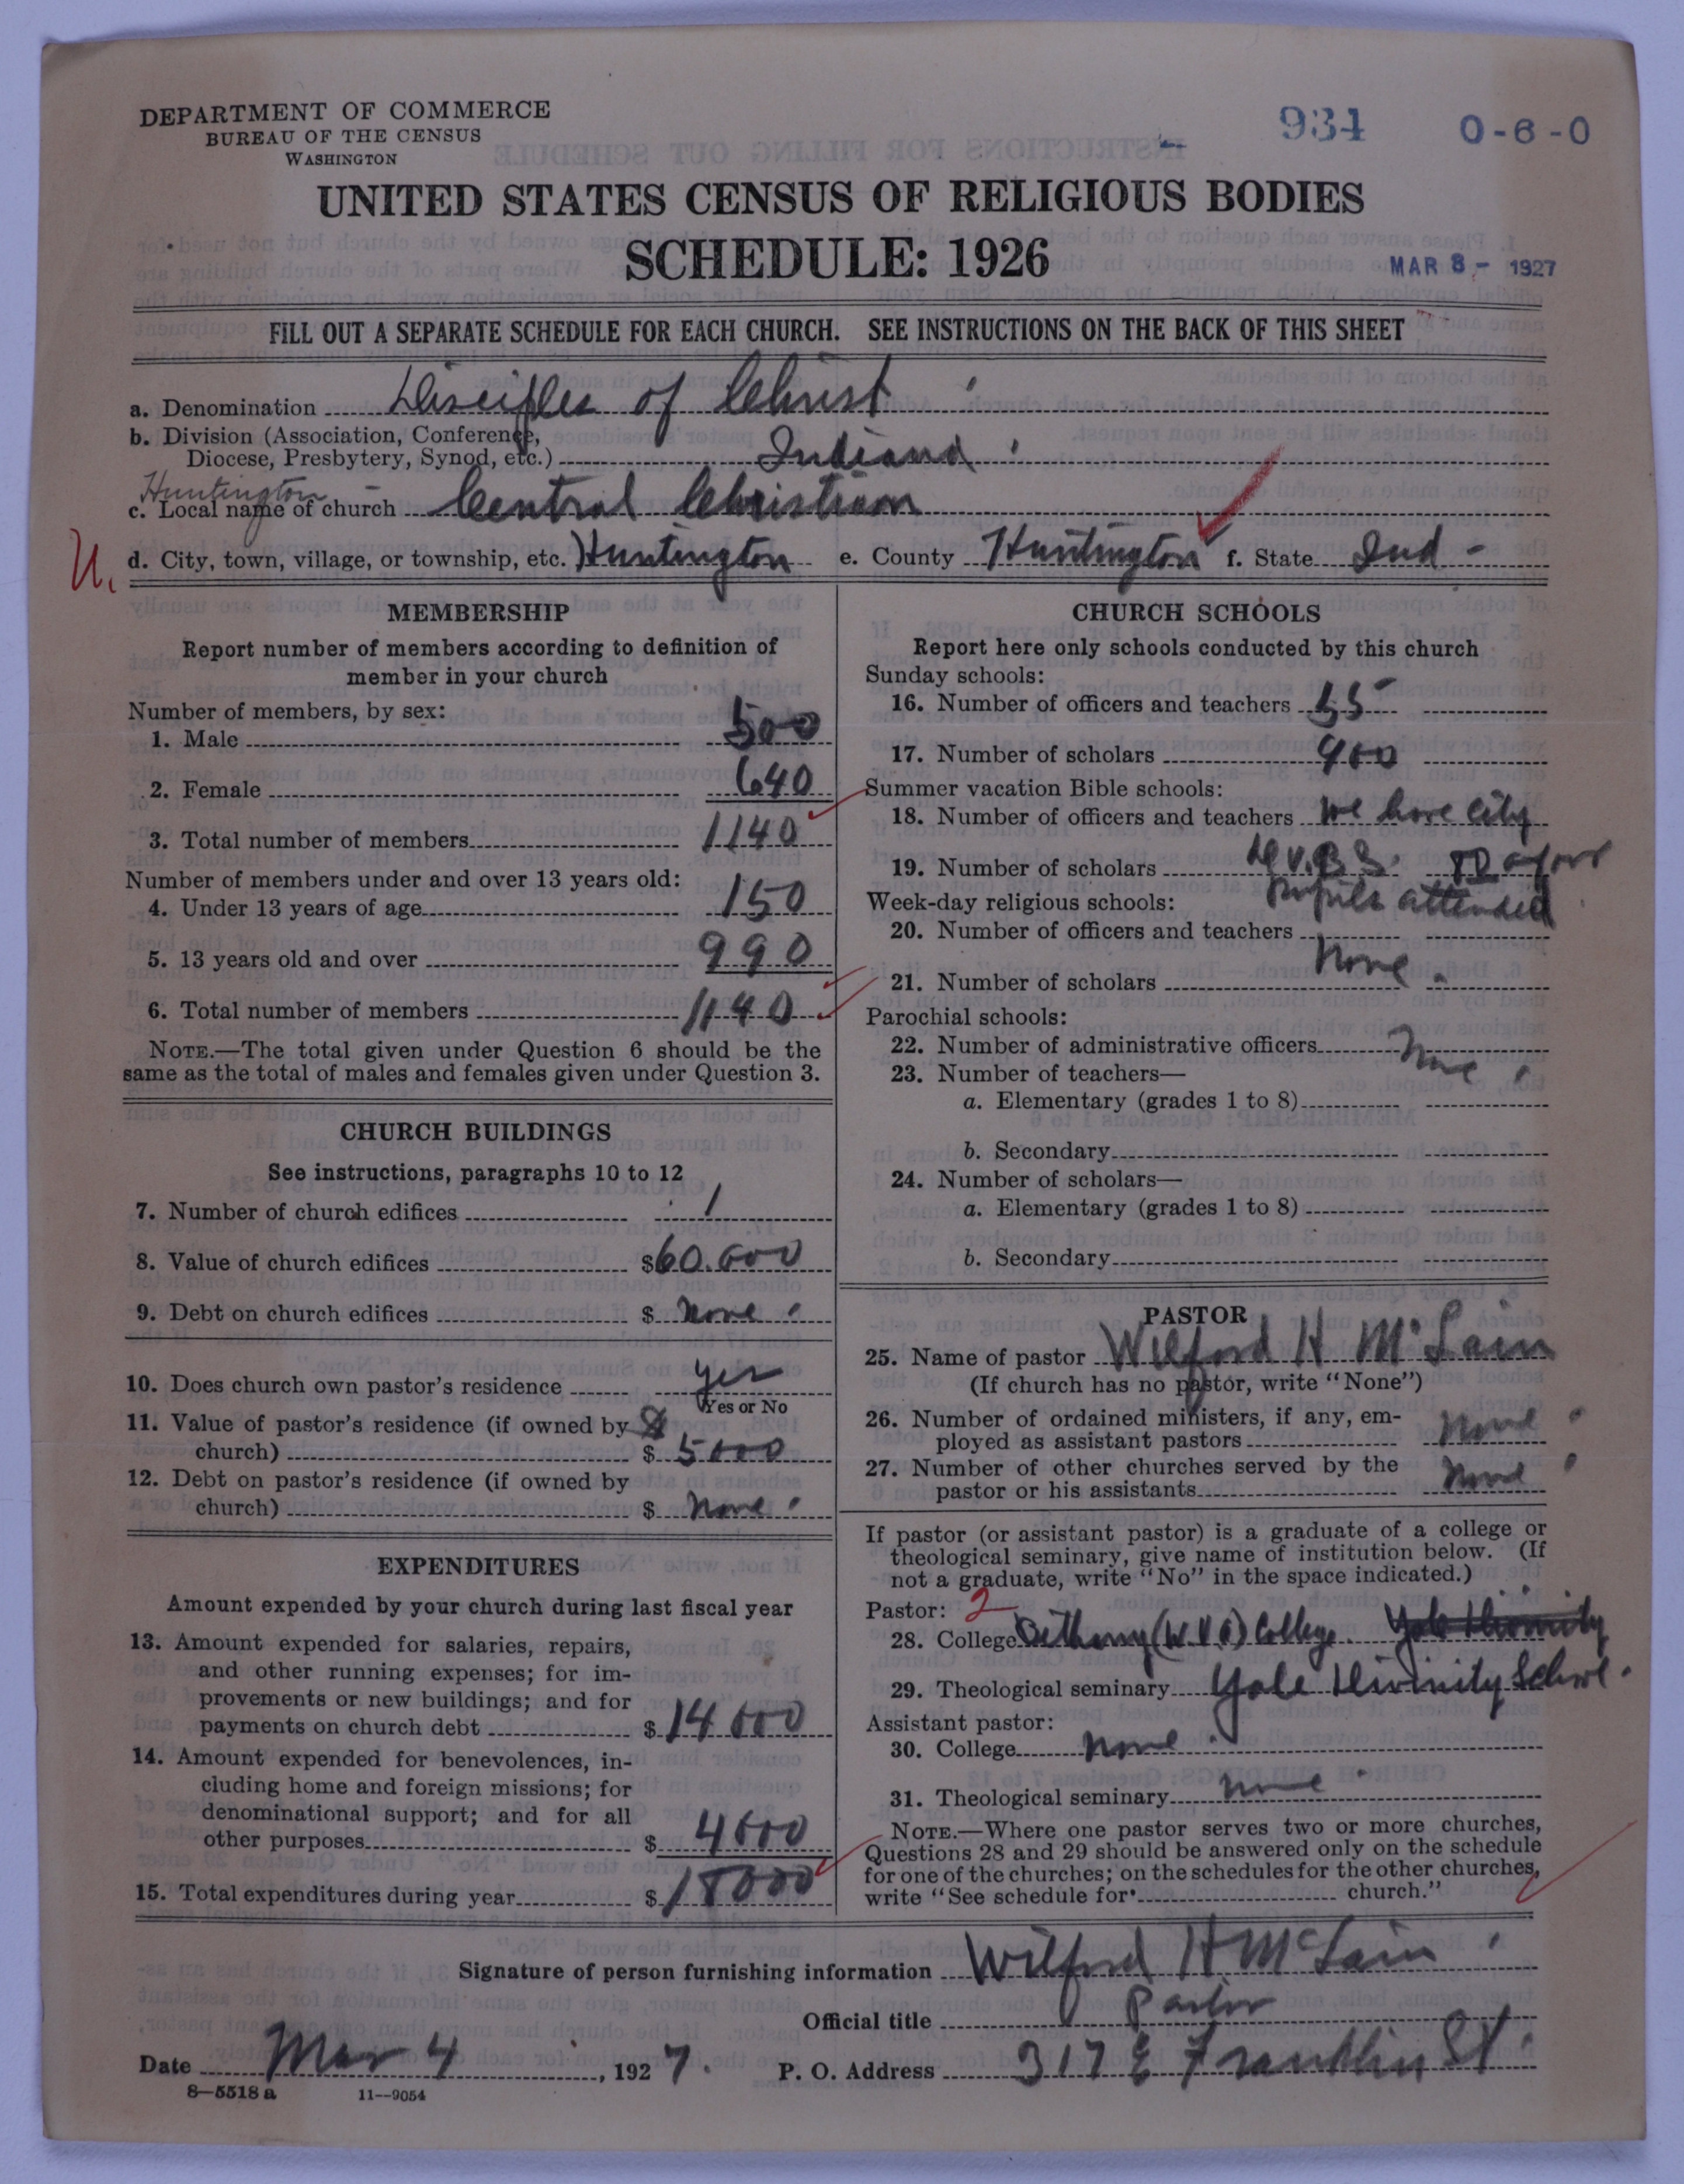 DEPARTMENT OF COMMERCE
BUREAU OF THE CENSUS
WASHINGTON
934 0-6-0
UNITED STATES CENSUS OF RELIGIOUS BODIES
SCHEDULE: 1926
MAR 8 - 1927
FILL OUT A SEPARATE SCHEDULE FOR EACH CHURCH. SEE INSTRUCTIONS ON THE BACK OF THIS SHEET
a. Denomination Disciples of Christ
b. Division (Association, Conference,
Diocese, Presbytery, Synod, etc.) Indiana
Huntington
c. Local name of church Central Christian
U. d. City, town, village, or township, etc. Huntington e. County Huntington f. State Ind -
MEMBERSHIP
Report number of members according to definition of
member in your church
Number of members, by sex:
1. Male 500
2. Female 640
3. Total number of members 1140
Number of members under and over 13 years old:
4. Under 13 years of age 150
5. 13 years old and over 990
6. Total number of members 1140
NOTE.—The total given under Question 6 should be the
same as the total of males and females given under Question 3.
CHURCH BUILDINGS
See instructions, paragraphs 10 to 12
7. Number of church edifices 1
8. Value of church edifices $60.000
9. Debt on church edifices $ none
10. Does church own pastor's residence yes
Yes or No
11. Value of pastor's residence (if owned by
church) $ 5000
12. Debt on pastor's residence (if owned by
church) $ none
EXPENDITURES
Amount expended by your church during last fiscal year
13. Amount expended for salaries, repairs,
and other running expenses; for im-
provements or new buildings; and for
payments on church debt $ 14000
14. Amount expended for benevolences, in-
cluding home and foreign missions; for
denominational support; and for all
other purposes $ 4000
15. Total expenditures during year $ 18000
CHURCH SCHOOLS
Report here only schools conducted by this church
Sunday schools:
16. Number of officers and teachers 55
17. Number of scholars 900
Summer vacation Bible schools:
18. Number of officers and teachers We have City
19. Number of scholars D.V.B.S. of our
Pupils attended
Week-day religious schools:
20. Number of officers and teachers
None
21. Number of scholars
Parochial schools:
22. Number of administrative officers None
23. Number of teachers—
a. Elementary (grades 1 to 8)
b. Secondary
24. Number of scholars—
a. Elementary (grades 1 to 8)
b. Secondary
PASTOR
25. Name of pastor Wilford H McLain
(If church has no pastor, write "None")
26. Number of ordained ministers, if any, em-
ployed as assistant pastors None
27. Number of other churches served by the
pastor or his assistants None
If pastor (or assistant pastor) is a graduate of a college or
theological seminary, give name of institution below. (If
not a graduate, write "No" in the space indicated.)
Pastor: 2
28. College Bethany (W.Va) College. Yale Divinity
29. Theological seminary Yale Divinity School.
Assistant pastor:
30. College none
31. Theological seminary none
NOTE.—Where one pastor serves two or more churches,
Questions 28 and 29 should be answered only on the schedule
for one of the churches; on the schedules for the other churches,
write "See schedule for church."
Signature of person furnishing information Wilford H McLain
Official title Pastor
Date Mar 4, 1927. P. O. Address 317 E Franklin St.
8—5518 a 11—9054